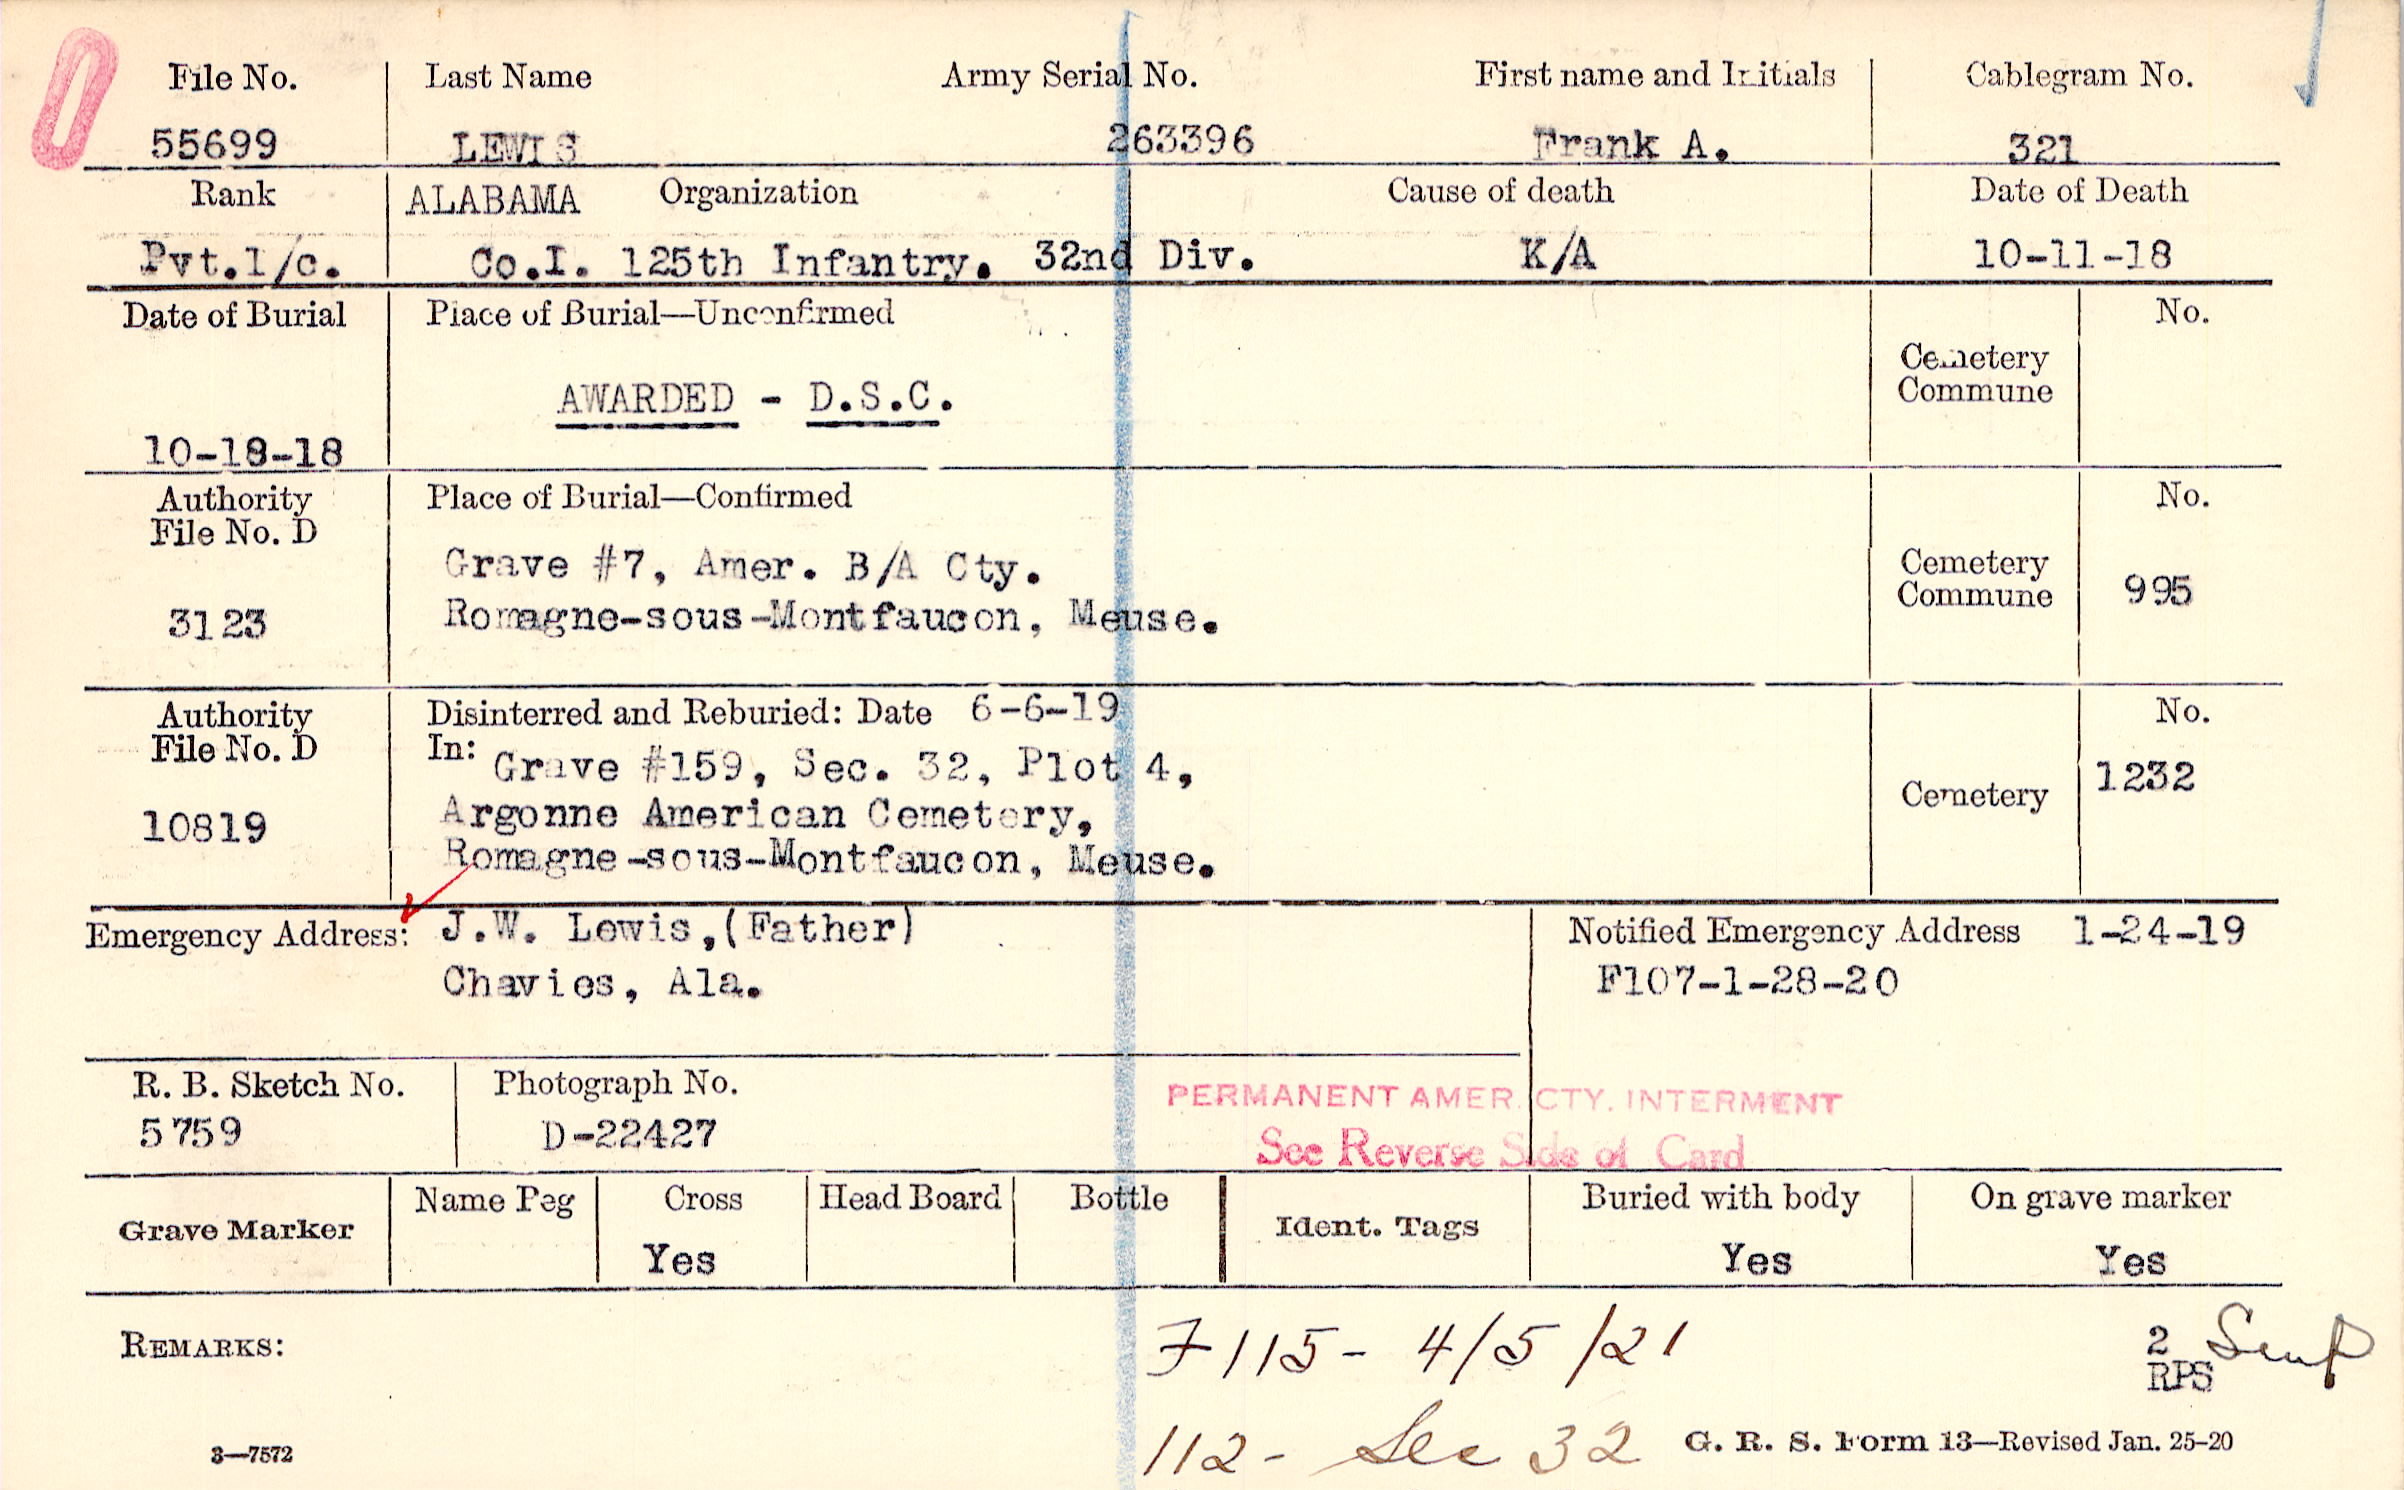 File No. Last Name Army Serial No. First name and Initials Cablegram No.
55699 LEWIS 263396 Frank A. 321
Rank ALABAMA Organization Cause of death Date of Death
Pvt.1/c. Co.I. 125th Infantry. 32nd Div. K/A 10-11-18
Date of Burial Place of Burial—Unconfirmed No.
Cemetery
Commune
AWARDED - D.S.C.
10-18-18
Authority Place of Burial—Confirmed No.
File No. D
Grave #7, Amer. B/A Cty. Cemetery
Commune 995
3123 Romagne-sous-Montfaucon, Meuse.
Authority Disinterred and Reburied: Date 6-6-19 No.
File No. D In: Grave #159, Sec. 32, Plot 4, 1232
Cemetery
10819 Argonne American Cemetery,
Romagne-sous-Montfaucon, Meuse.
Emergency Address: J.W. Lewis,(Father) Notified Emergency Address 1-24-19
Chavies, Ala. F107-1-28-20
R. B. Sketch No. Photograph No. PERMANENT AMER. CTY. INTERMENT
5759 D-22427 See Reverse Side of Card
Grave Marker Name Peg Cross Head Board Bottle Ident. Tags Buried with body On grave marker
Yes Yes Yes
REMARKS: F115- 4/5/21 2
RPS
112- Sec 32
3—7572 G. R. S. Form 13—Revised Jan. 25-20